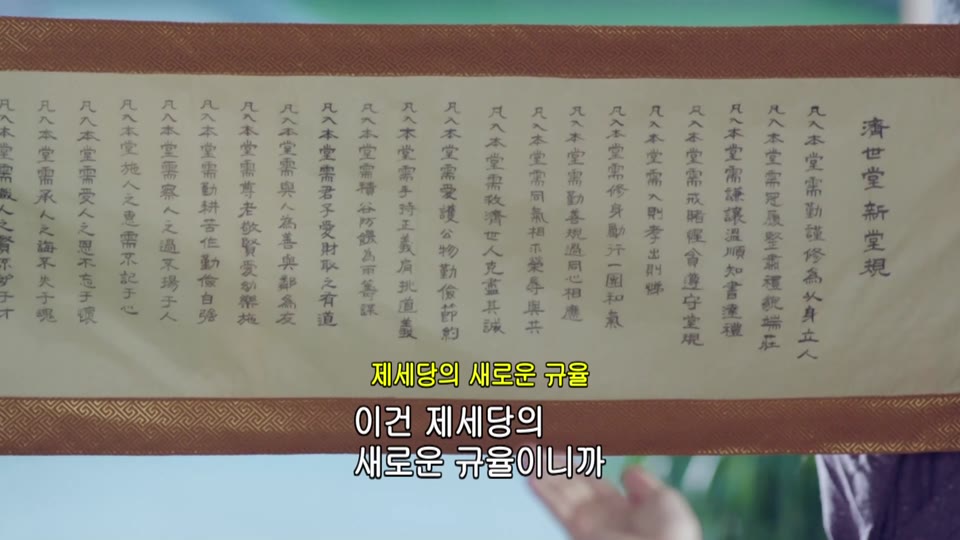 濟世堂新堂規
凡入本堂需勤謹修為以身立人
凡入本堂需冠履堅肅禮貌端莊
凡入本堂需謙讓溫順知書達禮
凡入本堂需戒賭淫貪遵守堂規
凡入本堂需入則孝出則悌
凡入本堂需修身勵行一團和氣
凡入本堂需勤善規過同心相應
凡入本堂需同氣相求榮辱與共
凡入本堂需救濟世人克盡其誠
凡入本堂需愛護公物勤儉節約
凡入本堂需手持正義肩挑道義
凡入本堂需積谷防饑為雨籌謀
凡入本堂需君子愛財取之有道
凡入本堂需與人為善與鄰為友
凡入本堂需尊老敬賢愛幼樂施
凡入本堂需勤耕苦作勤儉自強
凡入本堂需察人之過不揚于人
凡入本堂施人之恩需不記于心
凡入本堂需受人之恩不忘于懷
凡入本堂需承人之誨不失于魂
凡入本堂需識人之賢不妒于才
제세당의 새로운 규율
이건 제세당의
새로운 규율이니까